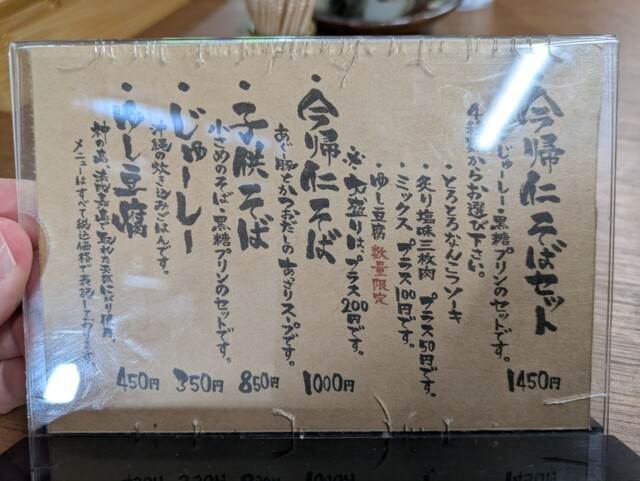 今帰仁そばセット 1450円
じゅーしー・黒糖プリンのセットです。
4種類からお選び下さい。
・とろとろなんこつソーキ
・炙り塩味三枚肉 プラス50円です。
・ミックス プラス100円です。
・ゆし豆腐 数量限定
※大盛りは、プラス200円です。
・今帰仁そば 1000円
あぐー豚とかつおだしのあっさりスープです。
・子供そば 850円
小さめのそば・黒糖プリンのセットです。
・じゅーしー 350円
沖縄の炊き込みごはんです。
・ゆし豆腐 450円
神の島 で取れた天然にがり使用。
メニューはすべて税込価格で表記しております。